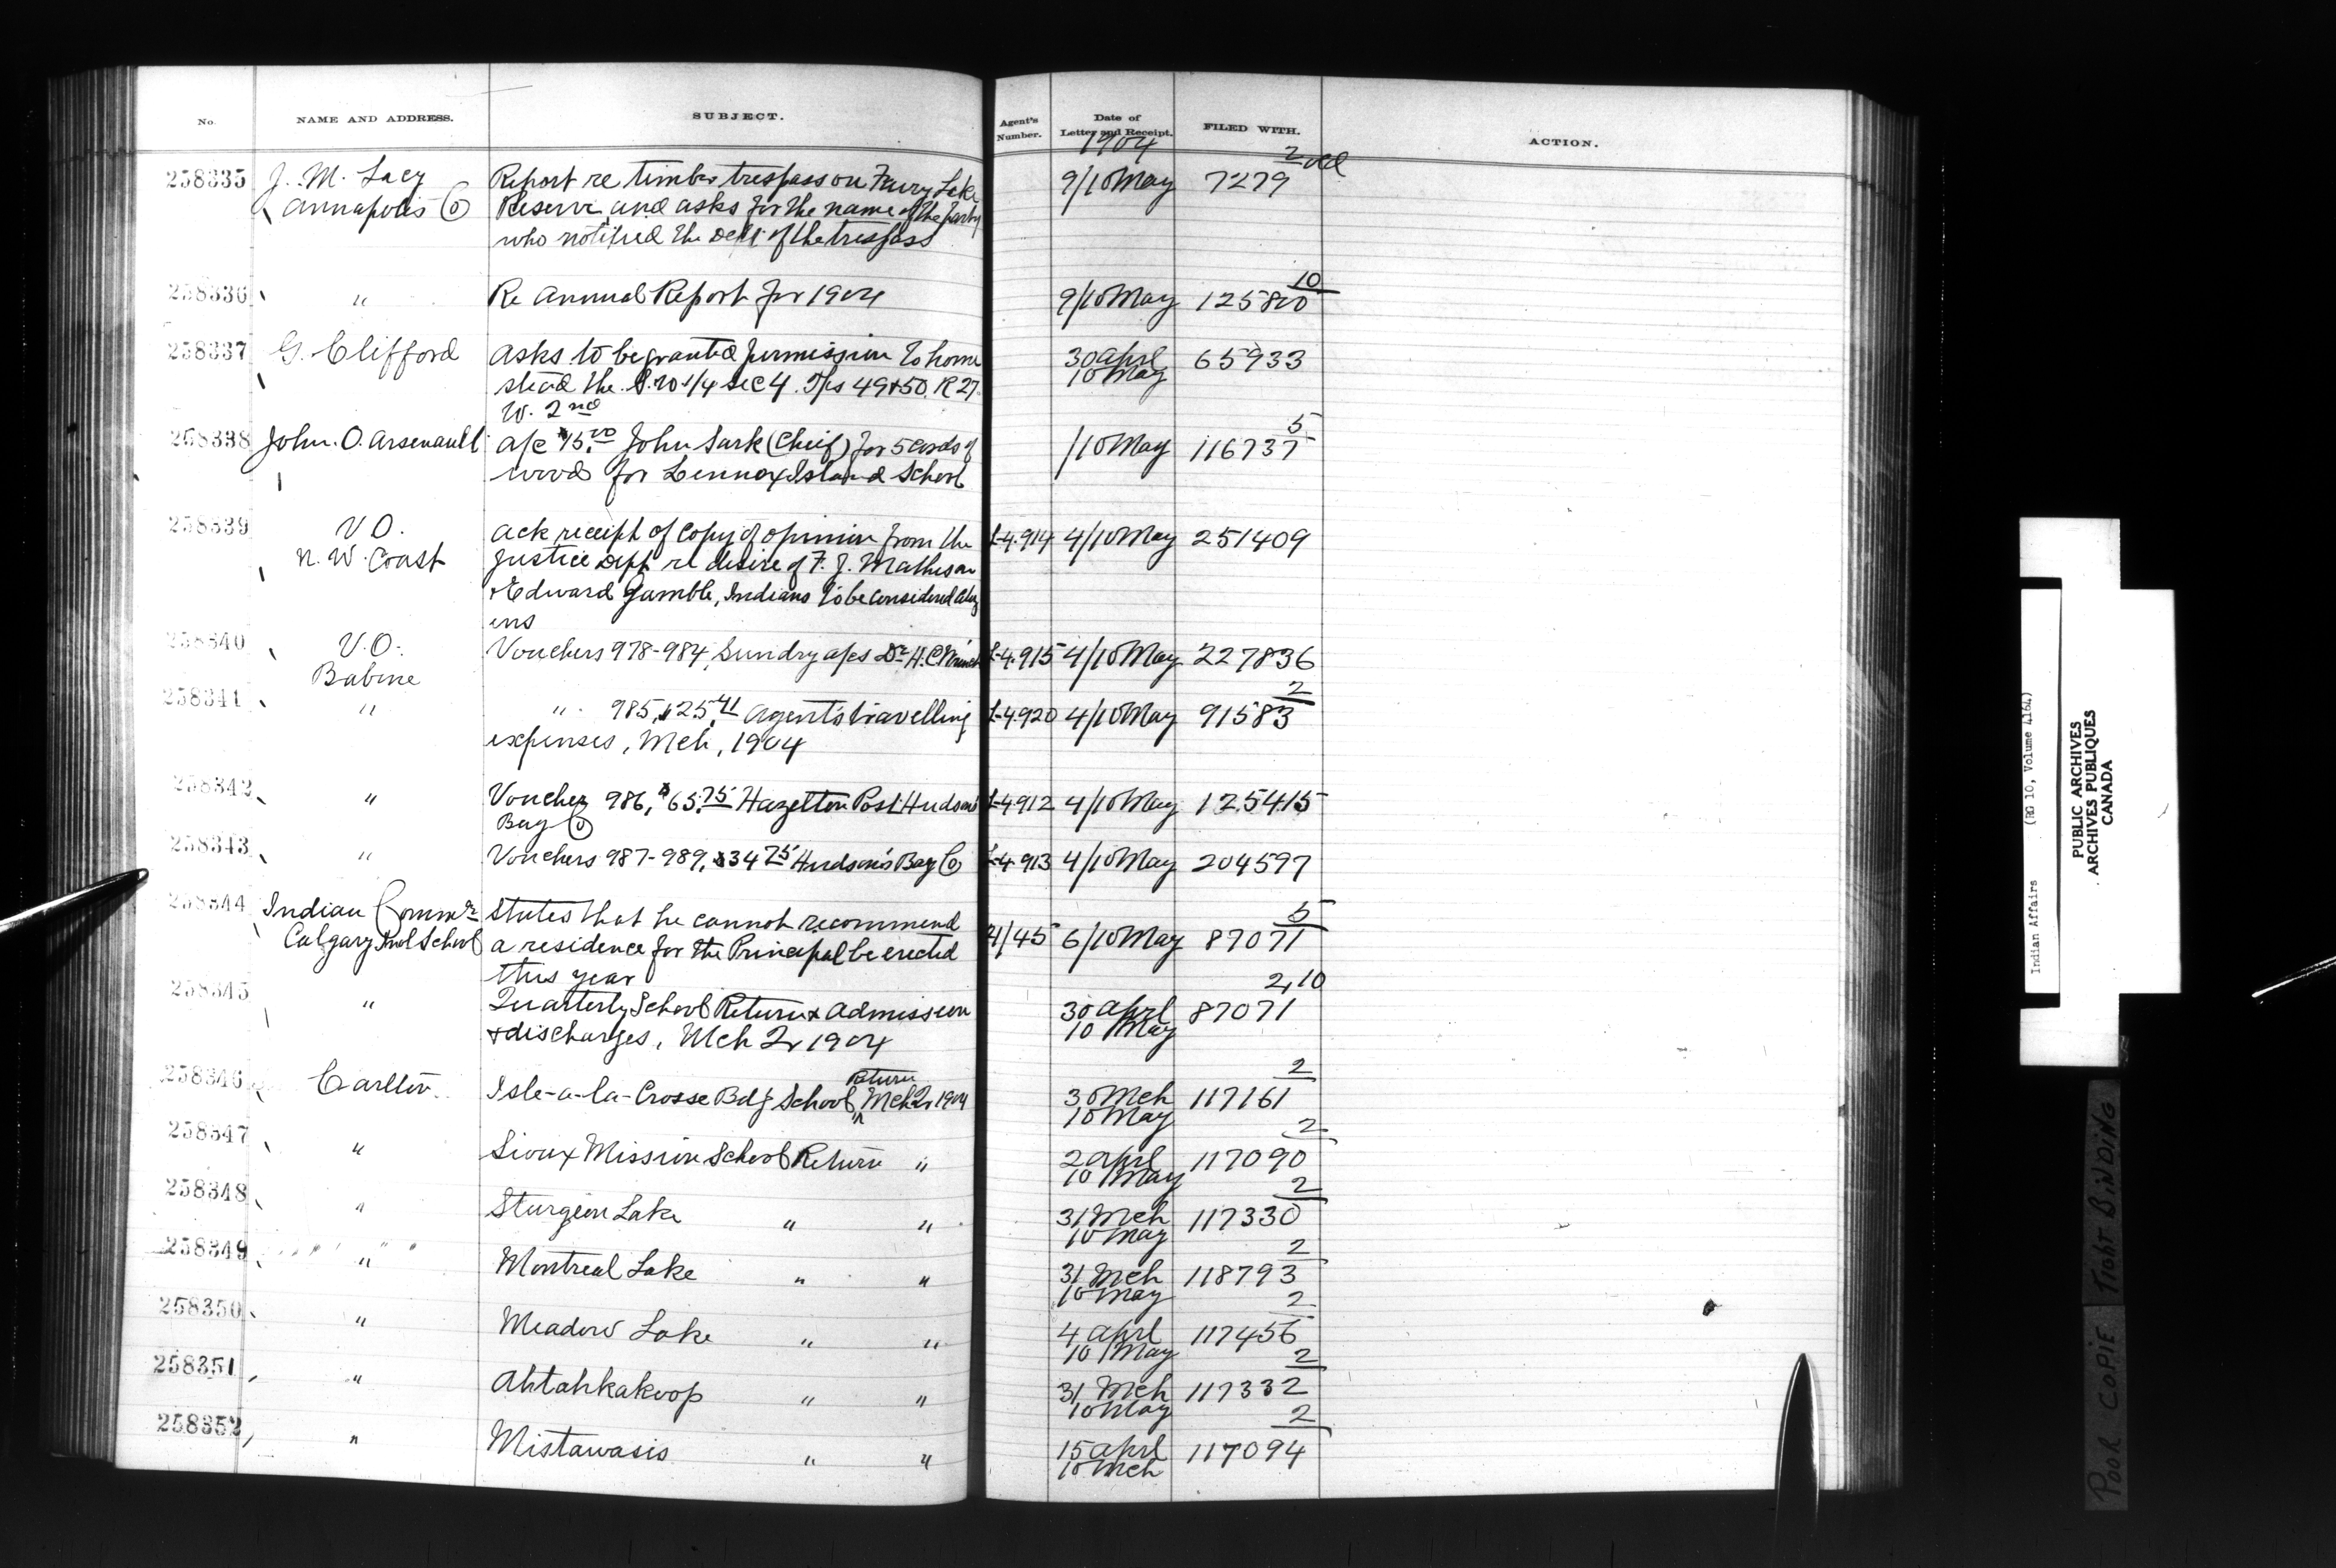 No. NAME AND ADDRESS. SUBJECT. Agent's Number. Date of Letter and Receipt. FILED WITH. ACTION.
1904
258335 J. M. Lacy Report re timber trespass on Fairy Lake 9/10 May 7279 2 old
Annapolis Co Reserve and asks for the name of the party
who notified the Dept of the trespass
258336 " Re Annual Report for 1904 9/10 May 125800 10
258337 G. Clifford Asks to be granted permission to home 30 Aprl 65933
stead the S.W 1/4 Sec 4. Tps 49 & 50. R 27 10 May
W. 2nd
258338 John. O. Arsenault a/c $15.00 John Sark (Chief) for 5 cords of /10 May 116737 5
wood for Lennox Island School
258339 V O. Ack receipt of copy of opinion from the L-4.914 4/10 May 251409
N. W. Coast Justice Dept re desire of F. J. Matheson
& Edward Gamble, Indians to be considered
258340 V. O. Vouchers 978-984, Sundry a/cs Dr H. C. L-4.915 4/10 May 227836
Babine
258341 " " 985, $25.41 Agent's travelling L-4.920 4/10 May 91583 2
expenses, Mch, 1904
258342 " Voucher 986, $65.75 Hazelton Post Hudson's L-4912 4/10 May 125415
Bay Co
258343 " Vouchers 987-989, $34.75 Hudson's Bay Co L-4913 4/10 May 204597
258344 Indian Commr States that he cannot recommend 4/45 6/10 May 87071 5
Calgary Indl School a residence for the Principal be erected
this year
258345 " Quarterly School Return & Admission 30 Aprl 87071 2,10
& discharges, Mch Qr 1904 10 May
258346 Carlton Isle-a-la-Crosse Bdg School Return Mch Qr 1904 30 Mch 117161 2
10 May
258347 " Sioux Mission School Return " 2 Aprl 117090 2
10 May
258348 " Sturgeon Lake " " 31 Mch 117330 2
10 May
258349 " Montreal Lake " " 31 Mch 118793 2
10 May
258350 " Meadow Lake " " 4 Aprl 117456 2
10 May
258351 " Ahtahkakoop " " 31 Mch 117332 2
10 May
258352 " Mistawasis " " 15 Aprl 117094 2
10 Mch
Indian Affairs (RG 10, Volume 4164)
PUBLIC ARCHIVES
ARCHIVES PUBLIQUES
CANADA
POOR COPIE TIGHT BINDING